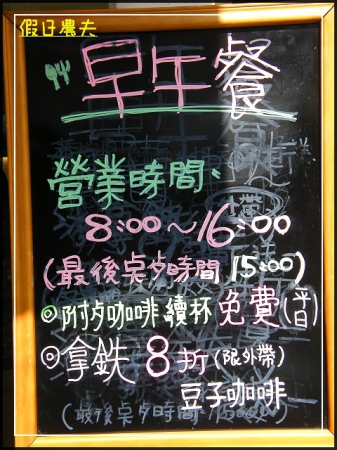 假日農夫
早午餐
營業時間:
8:00～16:00
(最後点歺時間 15:00)
◎附歺咖啡續杯免費(平日)
◎拿鉄 8折(限外帶)
豆子咖啡
(最後点歺時間 15:00)